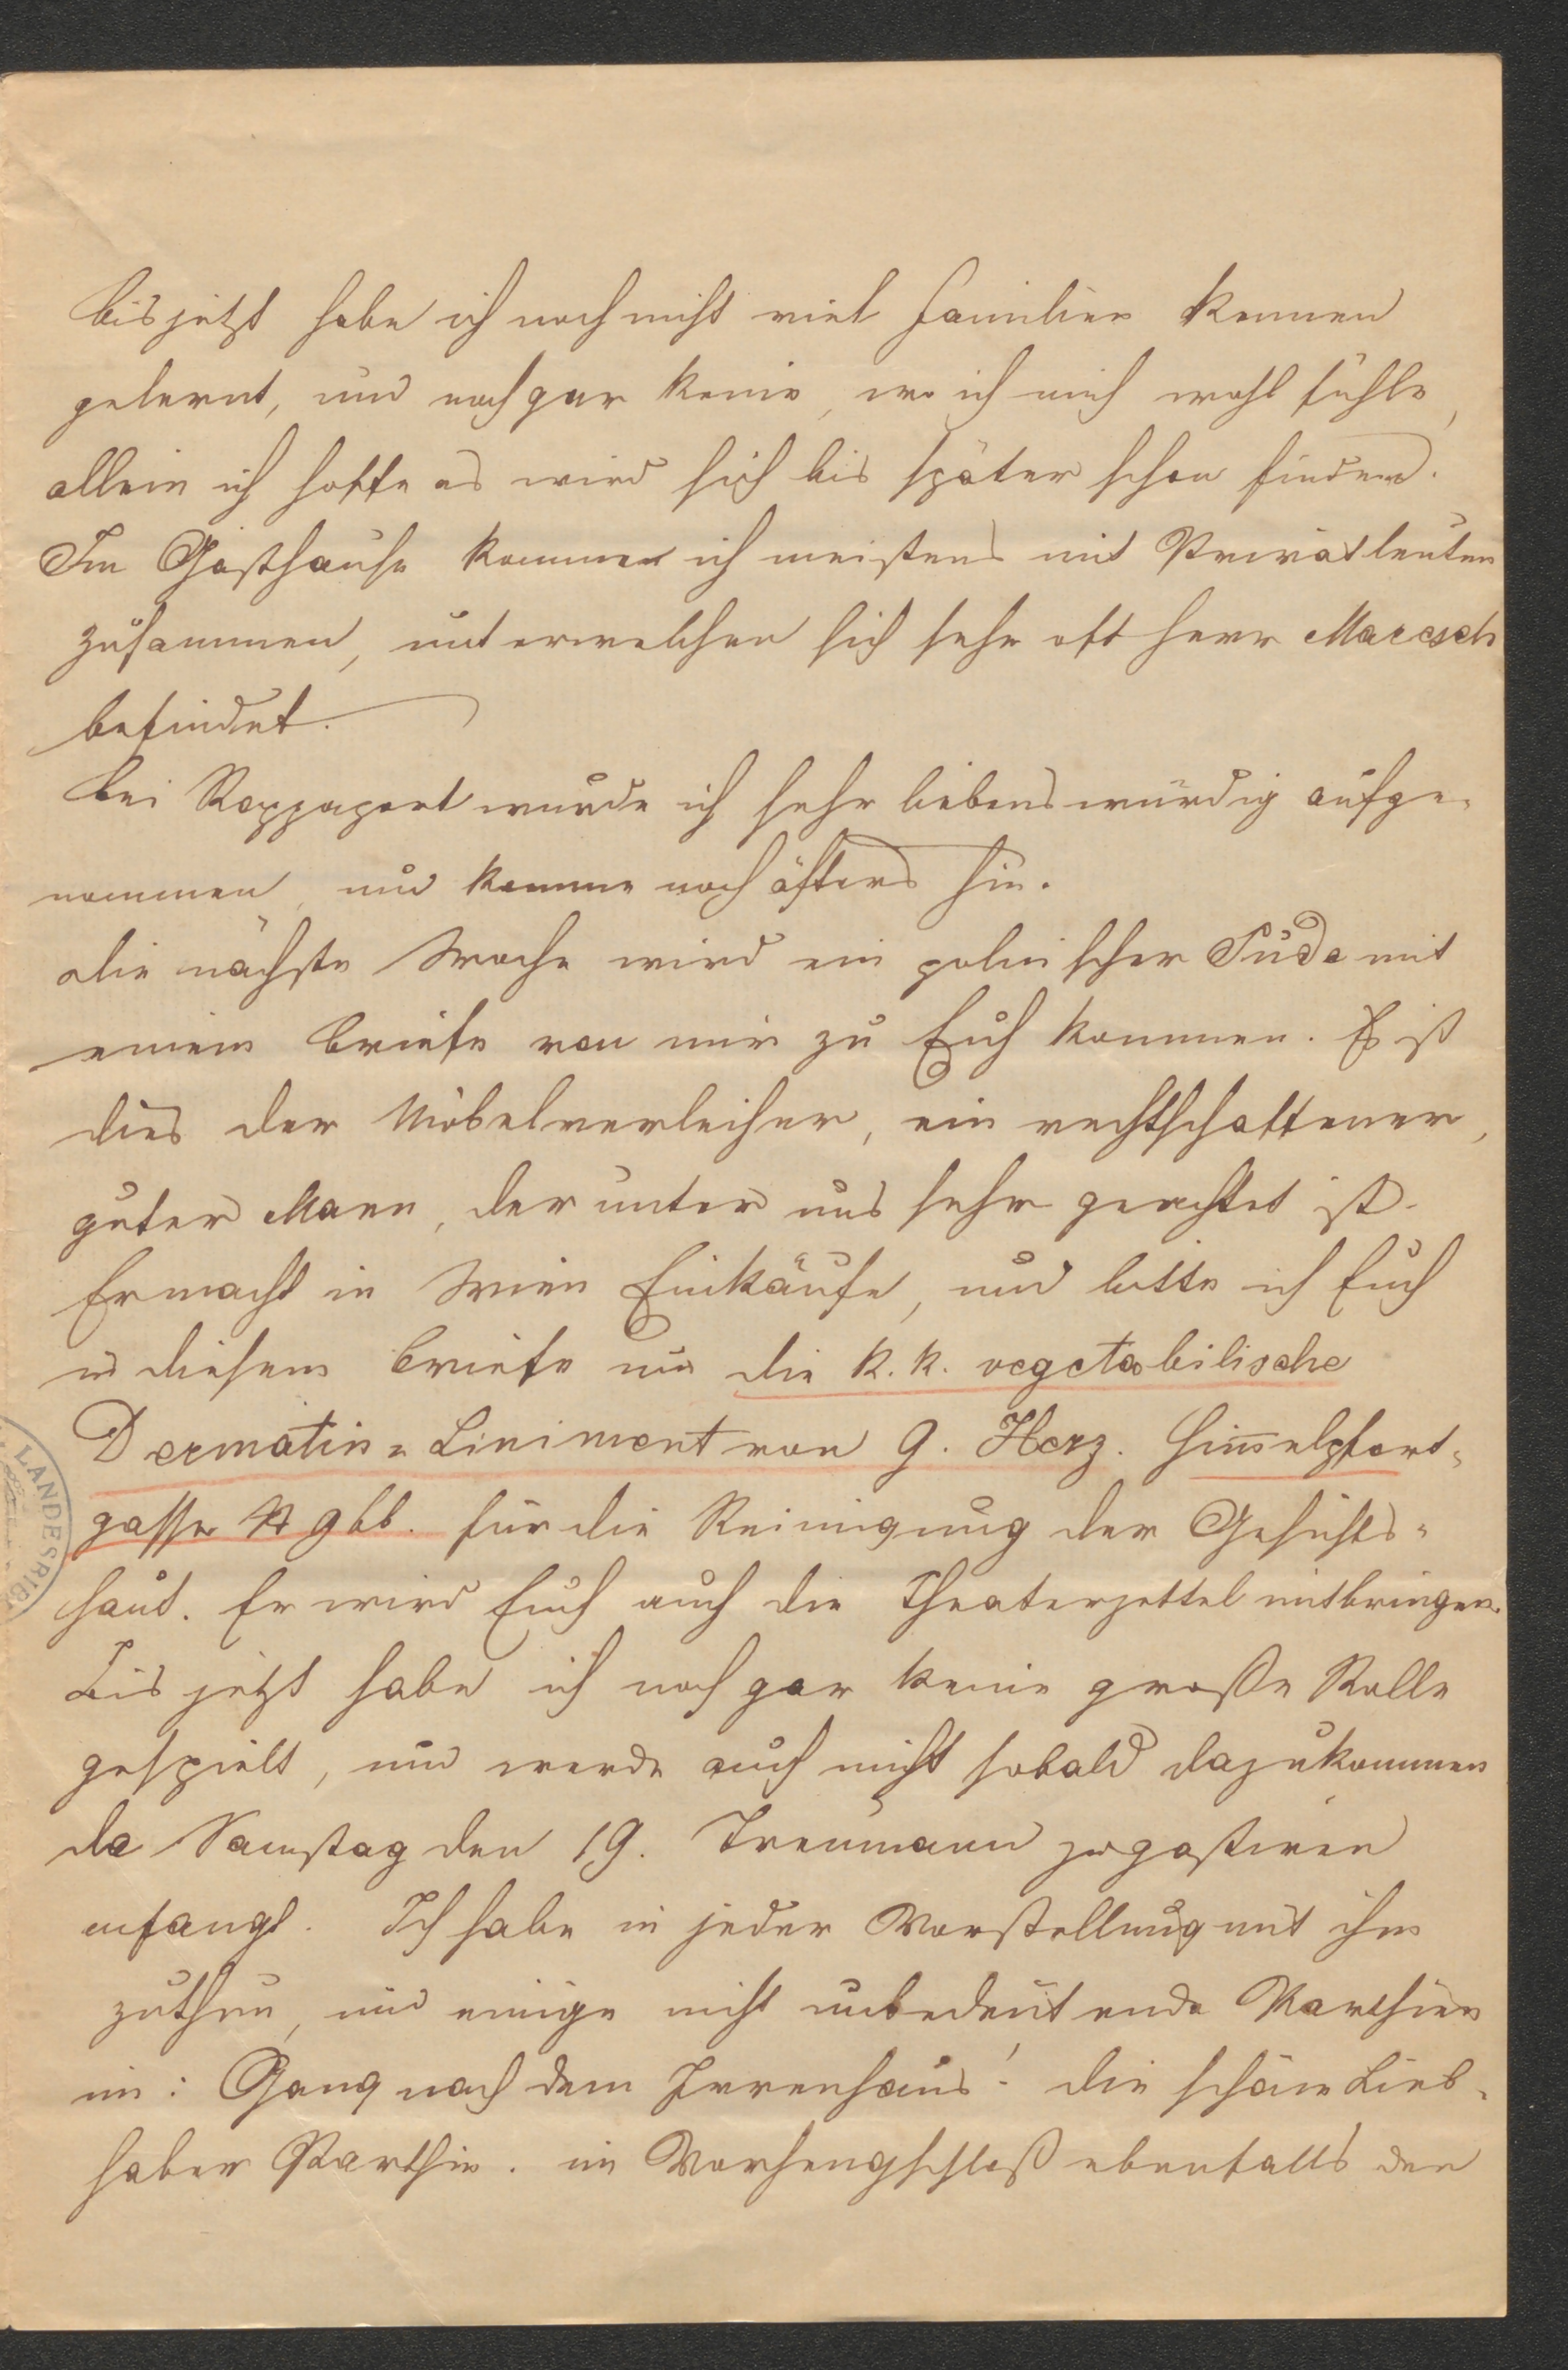 Bis jetzt habe ich noch nicht viel Familien kennen
gelernt, und noch gar keine, wo ich mich wohl fühle,
allein ich hoffe es wird sich bis später schon finden.
Im Gasthause komme ich meistens mit Privatleuten
zusammen, unterwelchen sich sehr oft Herr Maresch
befindet.
Bei Rappaport wurde ich sehr liebenswürdig aufge-
nommen, und komme noch öfters hin.
Die nächste Woche wird ein polnischer Jude mit
einem Briefe von mir zu Euch kommen. Es ist
dies der Möbelverleiher, ein rechtschaffener,
guter Mann, der unter uns sehr geachtet ist.
Er macht in Wien Einkäufe, und bitte ich Euch
in diesem Briefe um die k. k. vegetabilische
Dermatin-Liniment von G. Herz. Himmelpfort-
gasse N 966. für die Reinigung der Gesichts-
haut. Er wird Euch auch die Theaterzettel mitbringen.
Bis jetzt habe ich noch gar keine große Rolle
gespielt, und werde auch nicht sobald dazukommen
da Samstag den 19. Treumann zu gastiren
anfangt. Ich habe in jeder Vorstellung mit ihm
zuthun, und einige nicht unbedeutende Parthien
im: Gang nach dem Irrenhaus! die schöne Lieb-
haber Parthie. im Vorhengschloß ebenfalls den
LANDESBIB